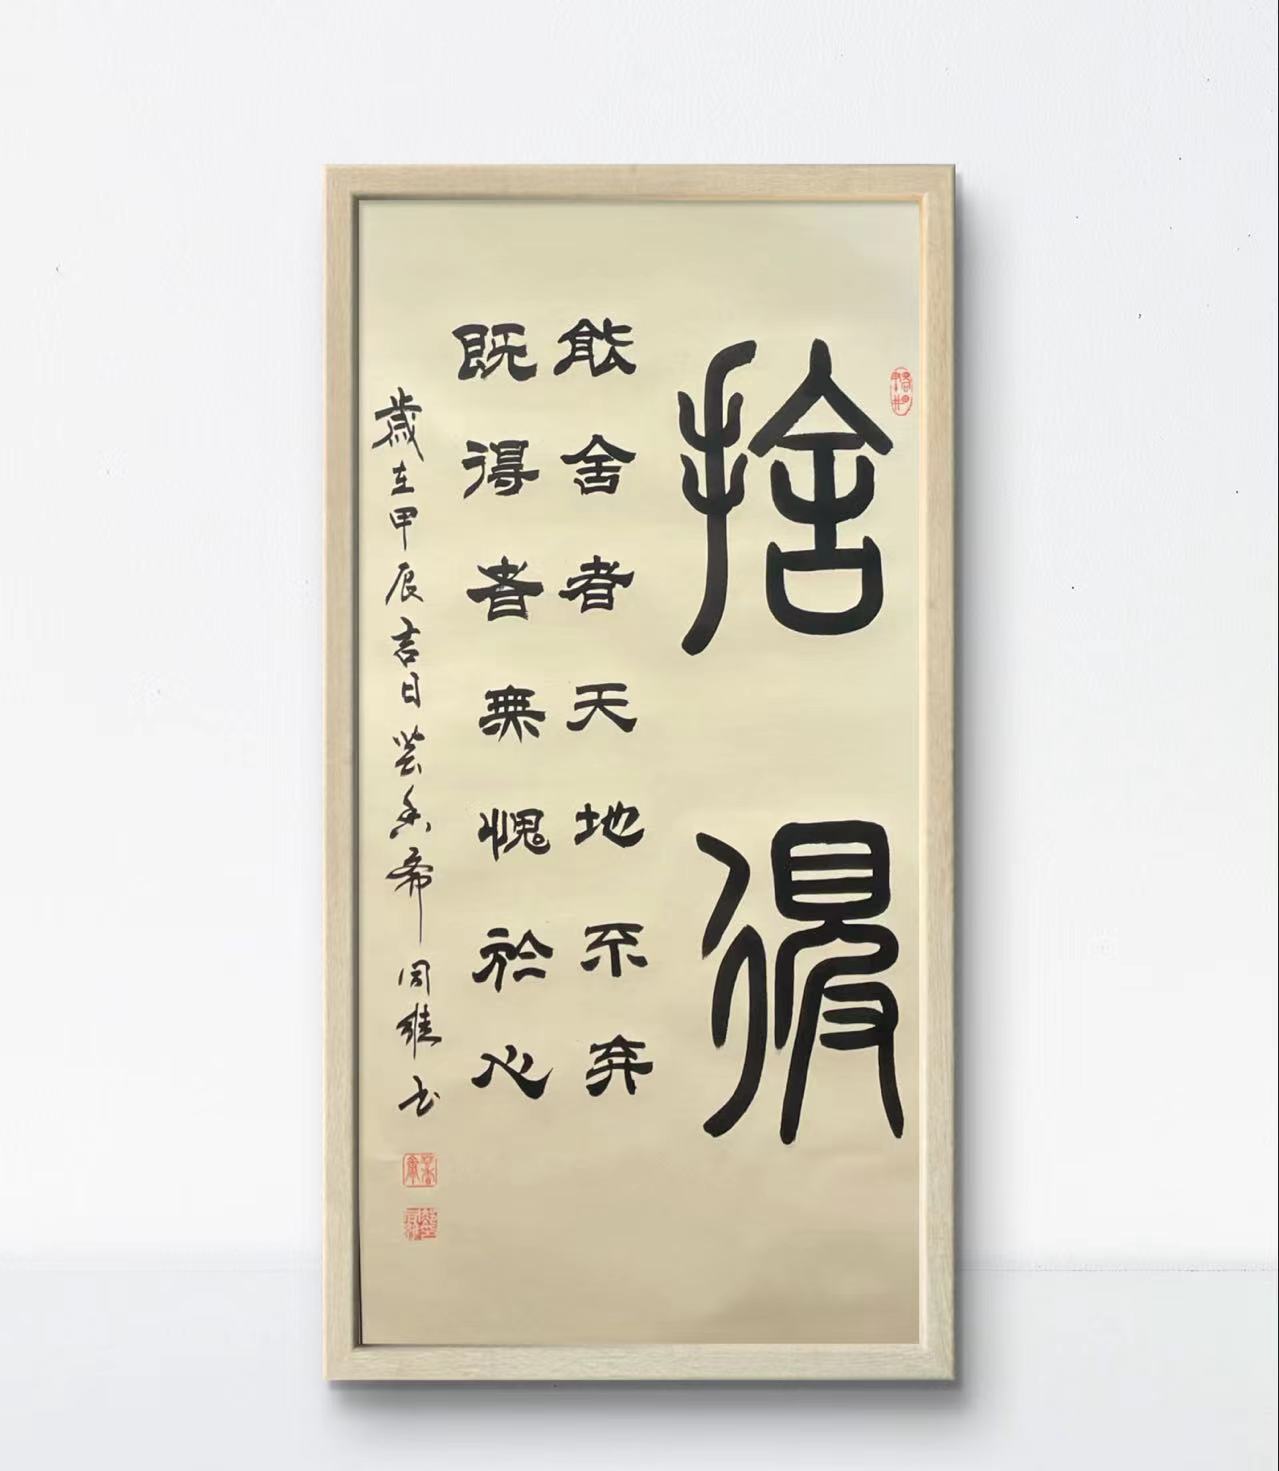 捨得
能舍者天地不弃
既得者無愧於心
歲在甲辰吉日芸香齋周継书